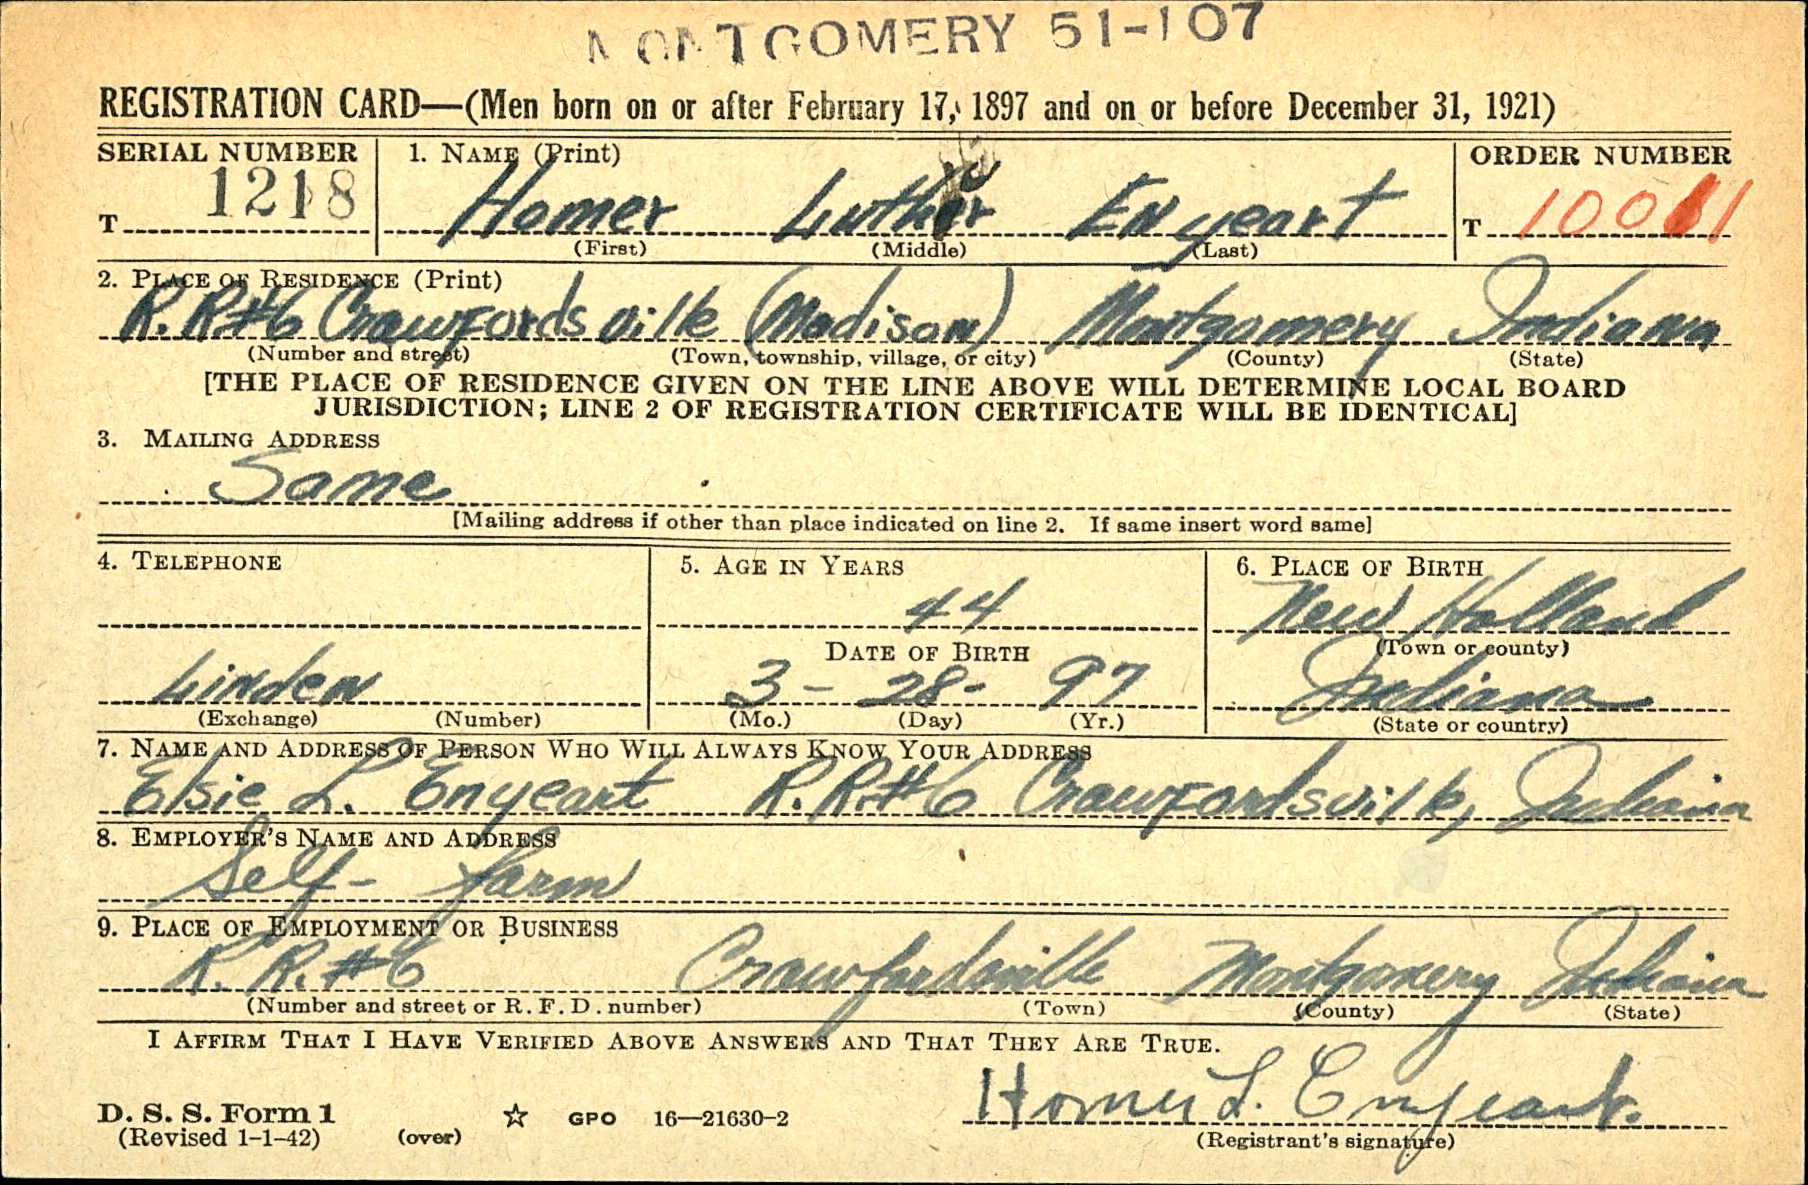 MONTGOMERY 51-107
REGISTRATION CARD—(Men born on or after February 17, 1897 and on or before December 31, 1921)
SERIAL NUMBER 1. NAME (Print) ORDER NUMBER
T 1218 Homer Luther Enyeart T
(First) (Middle) (Last)
2. PLACE OF RESIDENCE (Print)
R.R#6 Crawfordsville (Madison) Montgomery Indiana
(Number and street) (Town, township, village, or city) (County) (State)
[THE PLACE OF RESIDENCE GIVEN ON THE LINE ABOVE WILL DETERMINE LOCAL BOARD
JURISDICTION; LINE 2 OF REGISTRATION CERTIFICATE WILL BE IDENTICAL]
3. MAILING ADDRESS
Same
[Mailing address if other than place indicated on line 2. If same insert word same]
4. TELEPHONE 5. AGE IN YEARS 6. PLACE OF BIRTH
44 New Holland
DATE OF BIRTH (Town or county)
Linden 3- 28- 97 Indiana
(Exchange) (Number) (Mo.) (Day) (Yr.) (State or country)
7. NAME AND ADDRESS OF PERSON WHO WILL ALWAYS KNOW YOUR ADDRESS
Elsie L. Enyeart R.R.#6 Crawfordsville, Indiana
8. EMPLOYER'S NAME AND ADDRESS
Self- farm
9. PLACE OF EMPLOYMENT OR BUSINESS
R.R.#6 Crawfordsville Montgomery Indiana
(Number and street or R. F. D. number) (Town) (County) (State)
I AFFIRM THAT I HAVE VERIFIED ABOVE ANSWERS AND THAT THEY ARE TRUE.
Homer L. Enyeart.
D. S. S. Form 1 ☆ GPO 16—21630-2
(Revised 1-1-42) (over) (Registrant's signature)